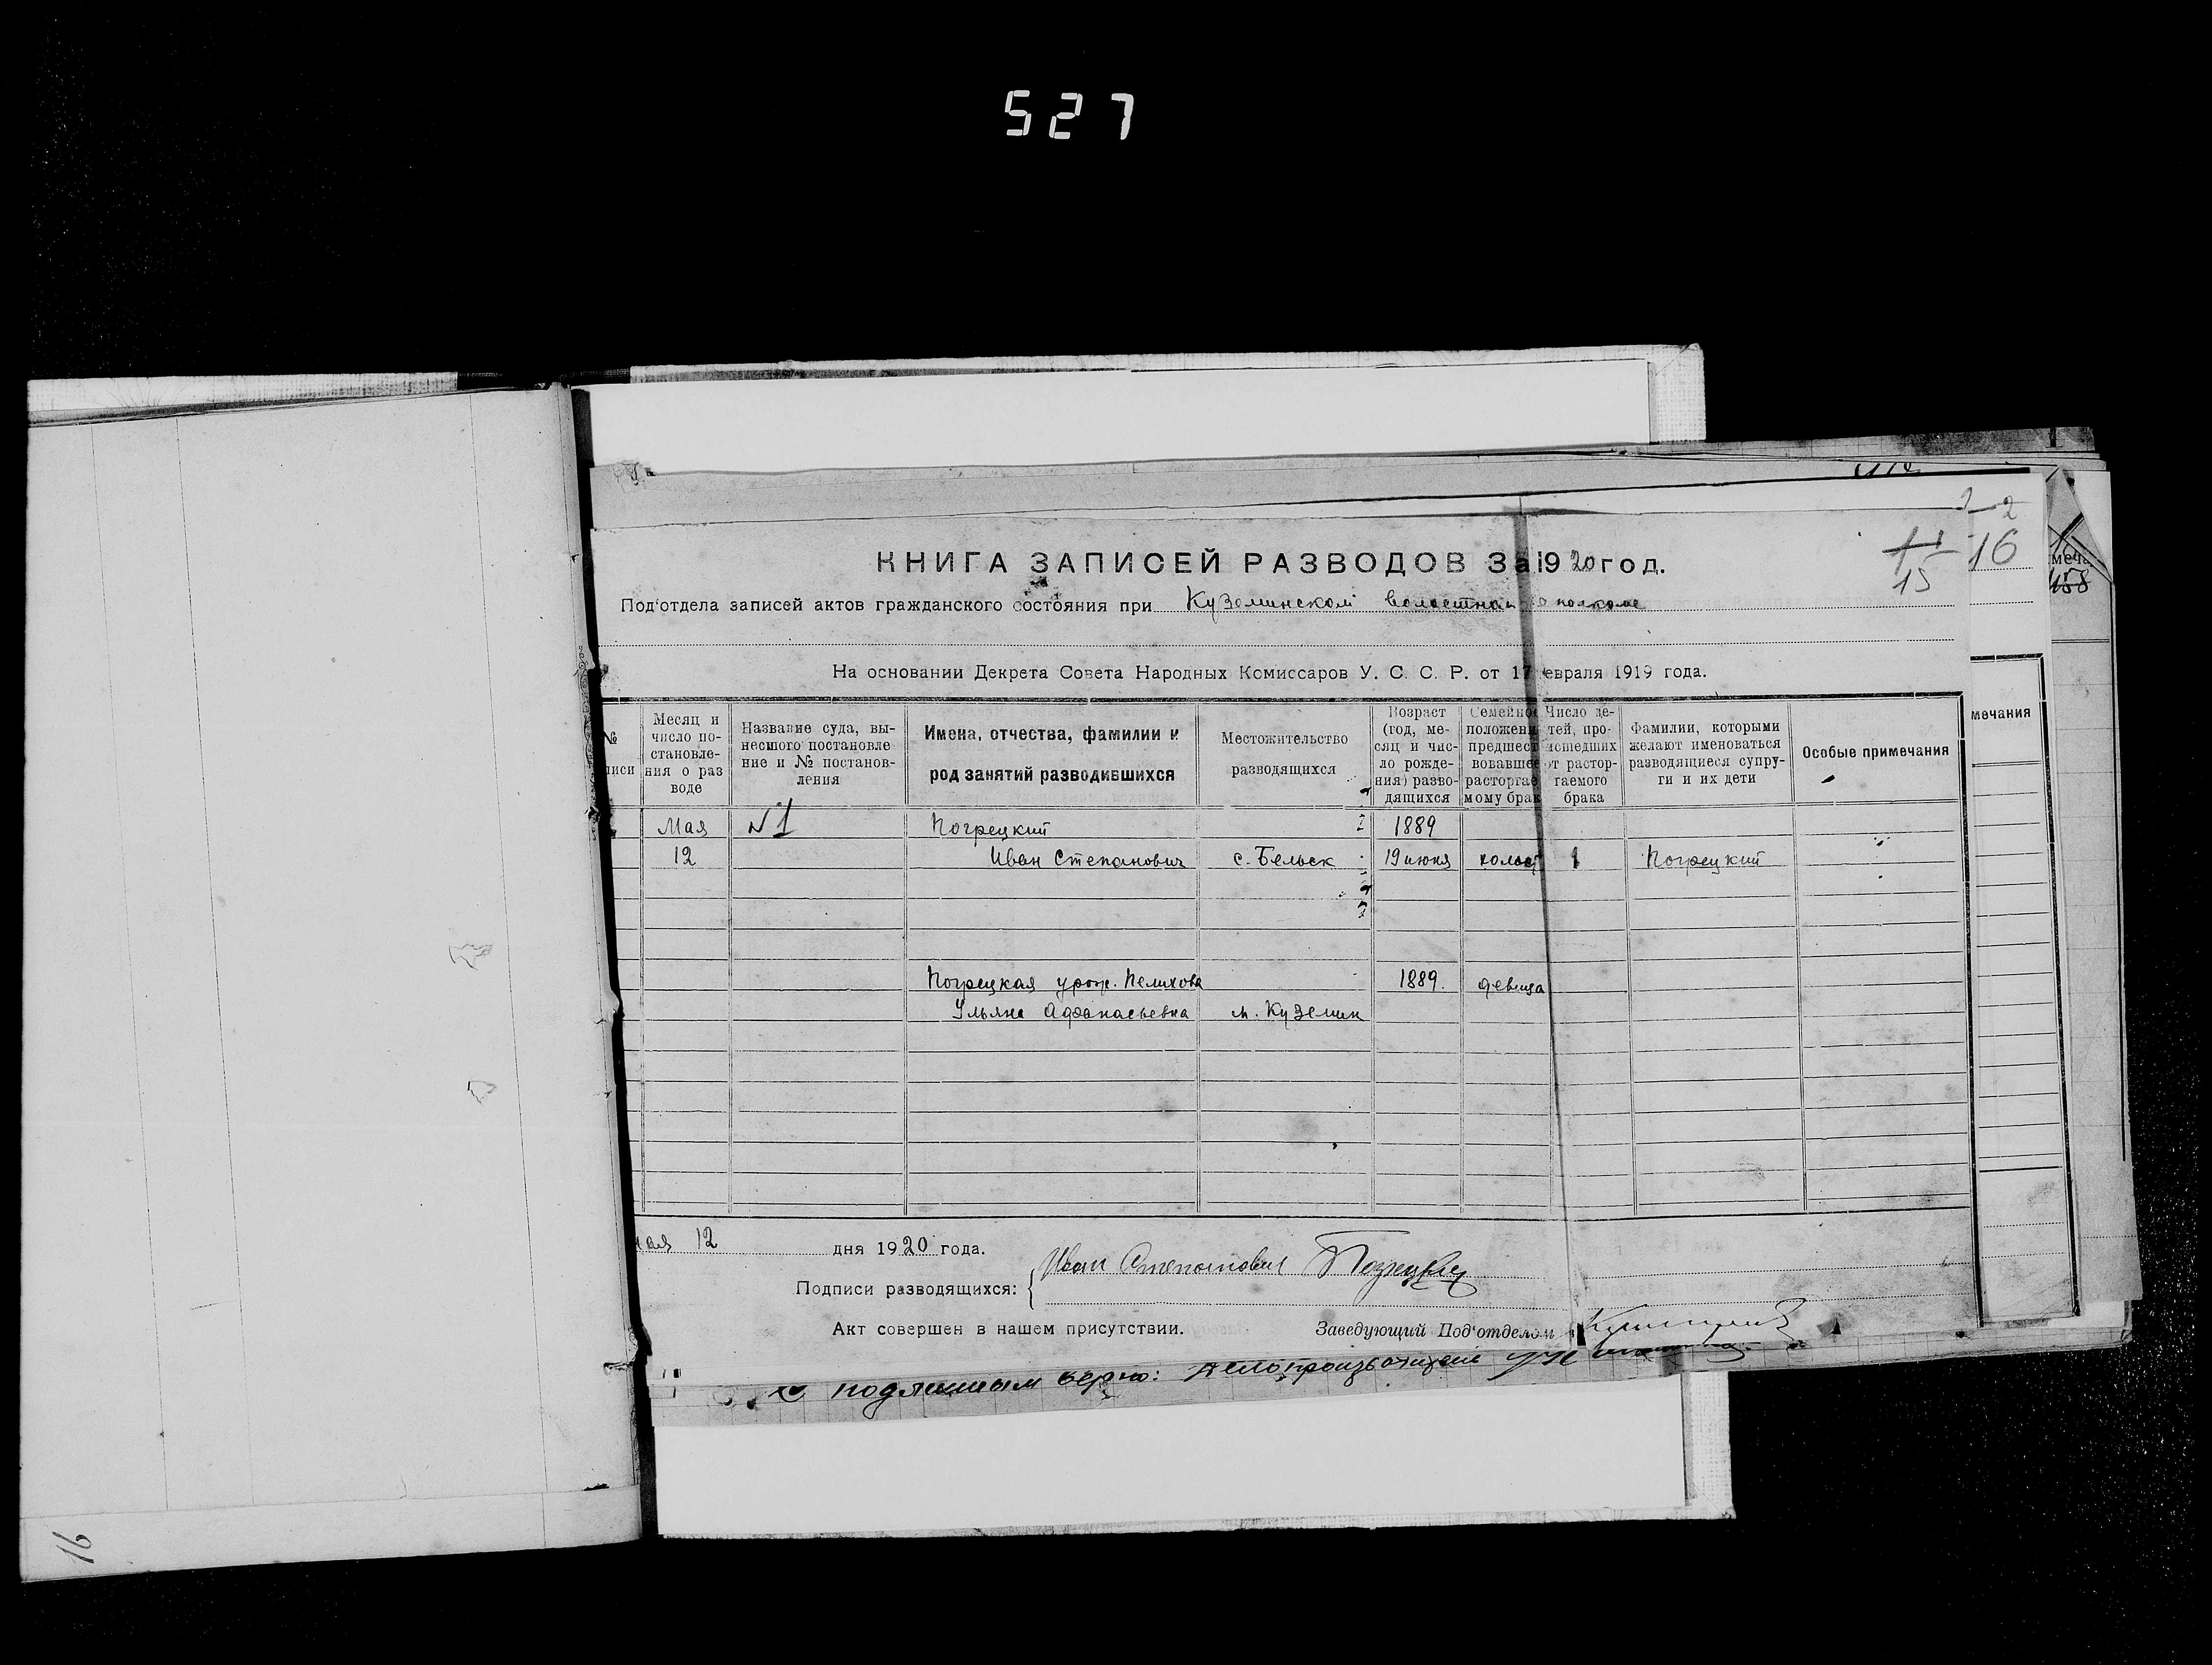 527
2
16
11
15
158
меча
КНИГА ЗАПИСЕЙ РАЗВОДОВ За 1920 год.
Под'отдела записей актов гражданского состояния при Куземинском волостном
На основании Декрета Совета Народных Комиссаров У. С. С. Р. от 17 евраля 1919 года.
№
писи
Месяц и
число по-
становле-
ния о раз
воде
Название суда, вы-
несшого постановле
ние и № постанов-
ления
Имена, отчества, фамилии и
род занятий разводившихся
Местожительство
разводящихся
Возраст
(год, ме-
сяц и чис-
ло рожде-
ния) разво-
дящихся
Семейное
положени
предшест
вовавшее
расторгае
мому брак
Число де-
тей, про-
исшедших
от растор-
гаемого
брака
Фамилии, которыми
желают именоваться
разводящиеся супру-
ги и их дети
Особые примечания
мечания
Мая №1 Погрецкий 1889
12 Иван Степанович с. Бельск 19 июня холост 1 Погрецкий
Погрецкая урож. Пелихова 1889. девица
Ульяна Афанасьевна м. Куземин
мая 12 дня 1920 года.
Иван Степанович Погрецкий
Подписи разводящихся:
Акт совершен в нашем присутствии. Заведующий Под'отделом
с подлинным верно: Делопроизводитель
16